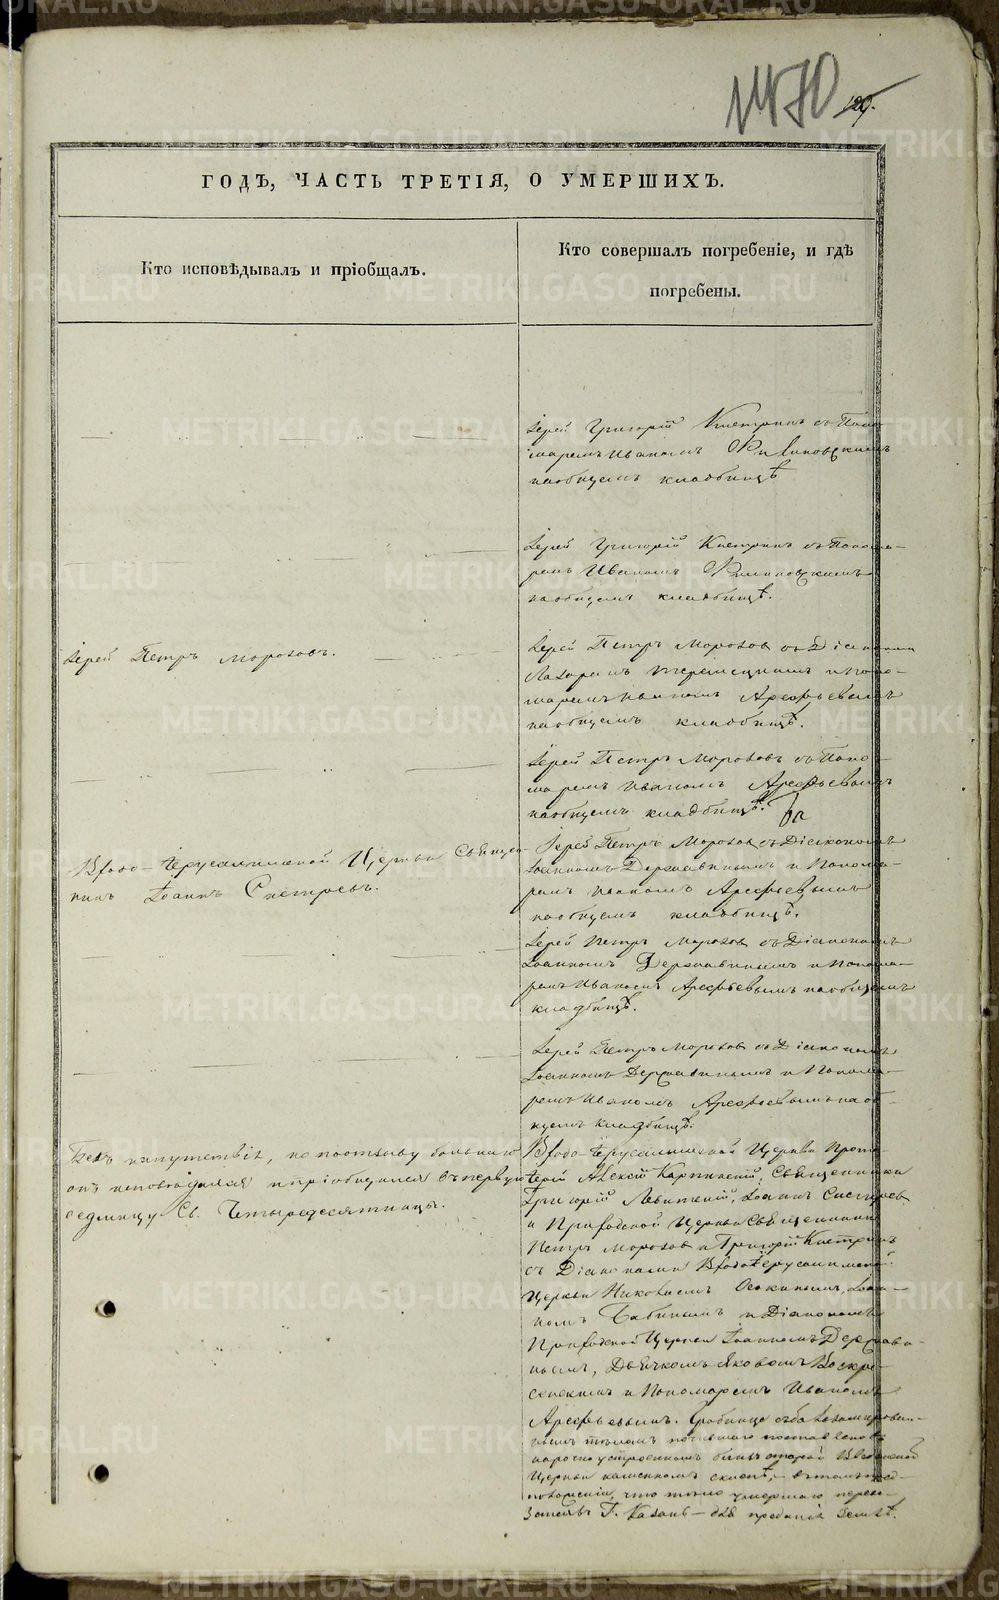 1470
129.
ГОДЪ, ЧАСТЬ ТРЕТІЯ, О УМЕРШИХЪ.
Кто исповѣдывалъ и пріобщалъ.
Кто совершалъ погребеніе, и гдѣ
погребены.
Іерей Григорій съ Поно-
маремъ Иваномъ
на общемъ кладбищѣ
Іерей Григорій съ Понома-
ремъ Иваномъ
на общемъ кладбищѣ.
Іерей Петръ Морозовъ.
Іерей Петръ Морозовъ съ Діакономъ
и Поно-
маремъ Иваномъ Арефьевымъ
на общемъ кладбищѣ.
Іерей Петръ Морозовъ съ Поно-
маремъ Иваномъ Арефьевымъ
на общемъ кладбищѣ.
Входо-Іерусалимской Церкви Священ-
никъ Іоаннъ Снегиревъ.
Іерей Петръ Морозовъ съ Діакономъ
Іоанномъ Державинымъ и Понома-
ремъ Иваномъ Арефьевымъ
на общемъ кладбищѣ.
Іерей Петръ Морозовъ съ Діакономъ
Іоанномъ Державинымъ и Понома-
ремъ Иваномъ Арефьевымъ на общемъ
кладбищѣ.
Іерей Петръ Морозовъ съ Діакономъ
Іоанномъ Державинымъ и Понома-
ремъ Иваномъ Арефьевымъ на об-
щемъ кладбищѣ.
Безъ напутствія, но по отзыву больнаго
онъ исповѣдался и пріобщался въ первую
седмицу Св. Четыредесятницы.
Входо-Іерусалимской Церкви Прото-
іерей Алексій Карпинскій, Священники
Григорій Левитскій, Іоаннъ Снегирев
и Приходской Церкви Священники
Петръ Морозовъ и Григорій
съ Діаконами Входоіерусалимской
Церкви Осокинымъ, Іоан-
номъ Бабинымъ и Діакономъ
Приходской Церкви Іоанномъ Держави-
нымъ, Дьячкомъ Яковомъ Воскре-
сенскимъ и Пономаремъ Иваномъ
Арефьевымъ. Гробница съ бальзамирован-
нымъ тѣломъ поставлена въ
нарочно устроенномъ близъ оградой
Церкви каменномъ склепѣ, въ томъ пред-
положеніи, что тѣло умершаго переве-
зено въ Г. Казань для преданія землѣ.
METRIKI.GASO-URAL.RU